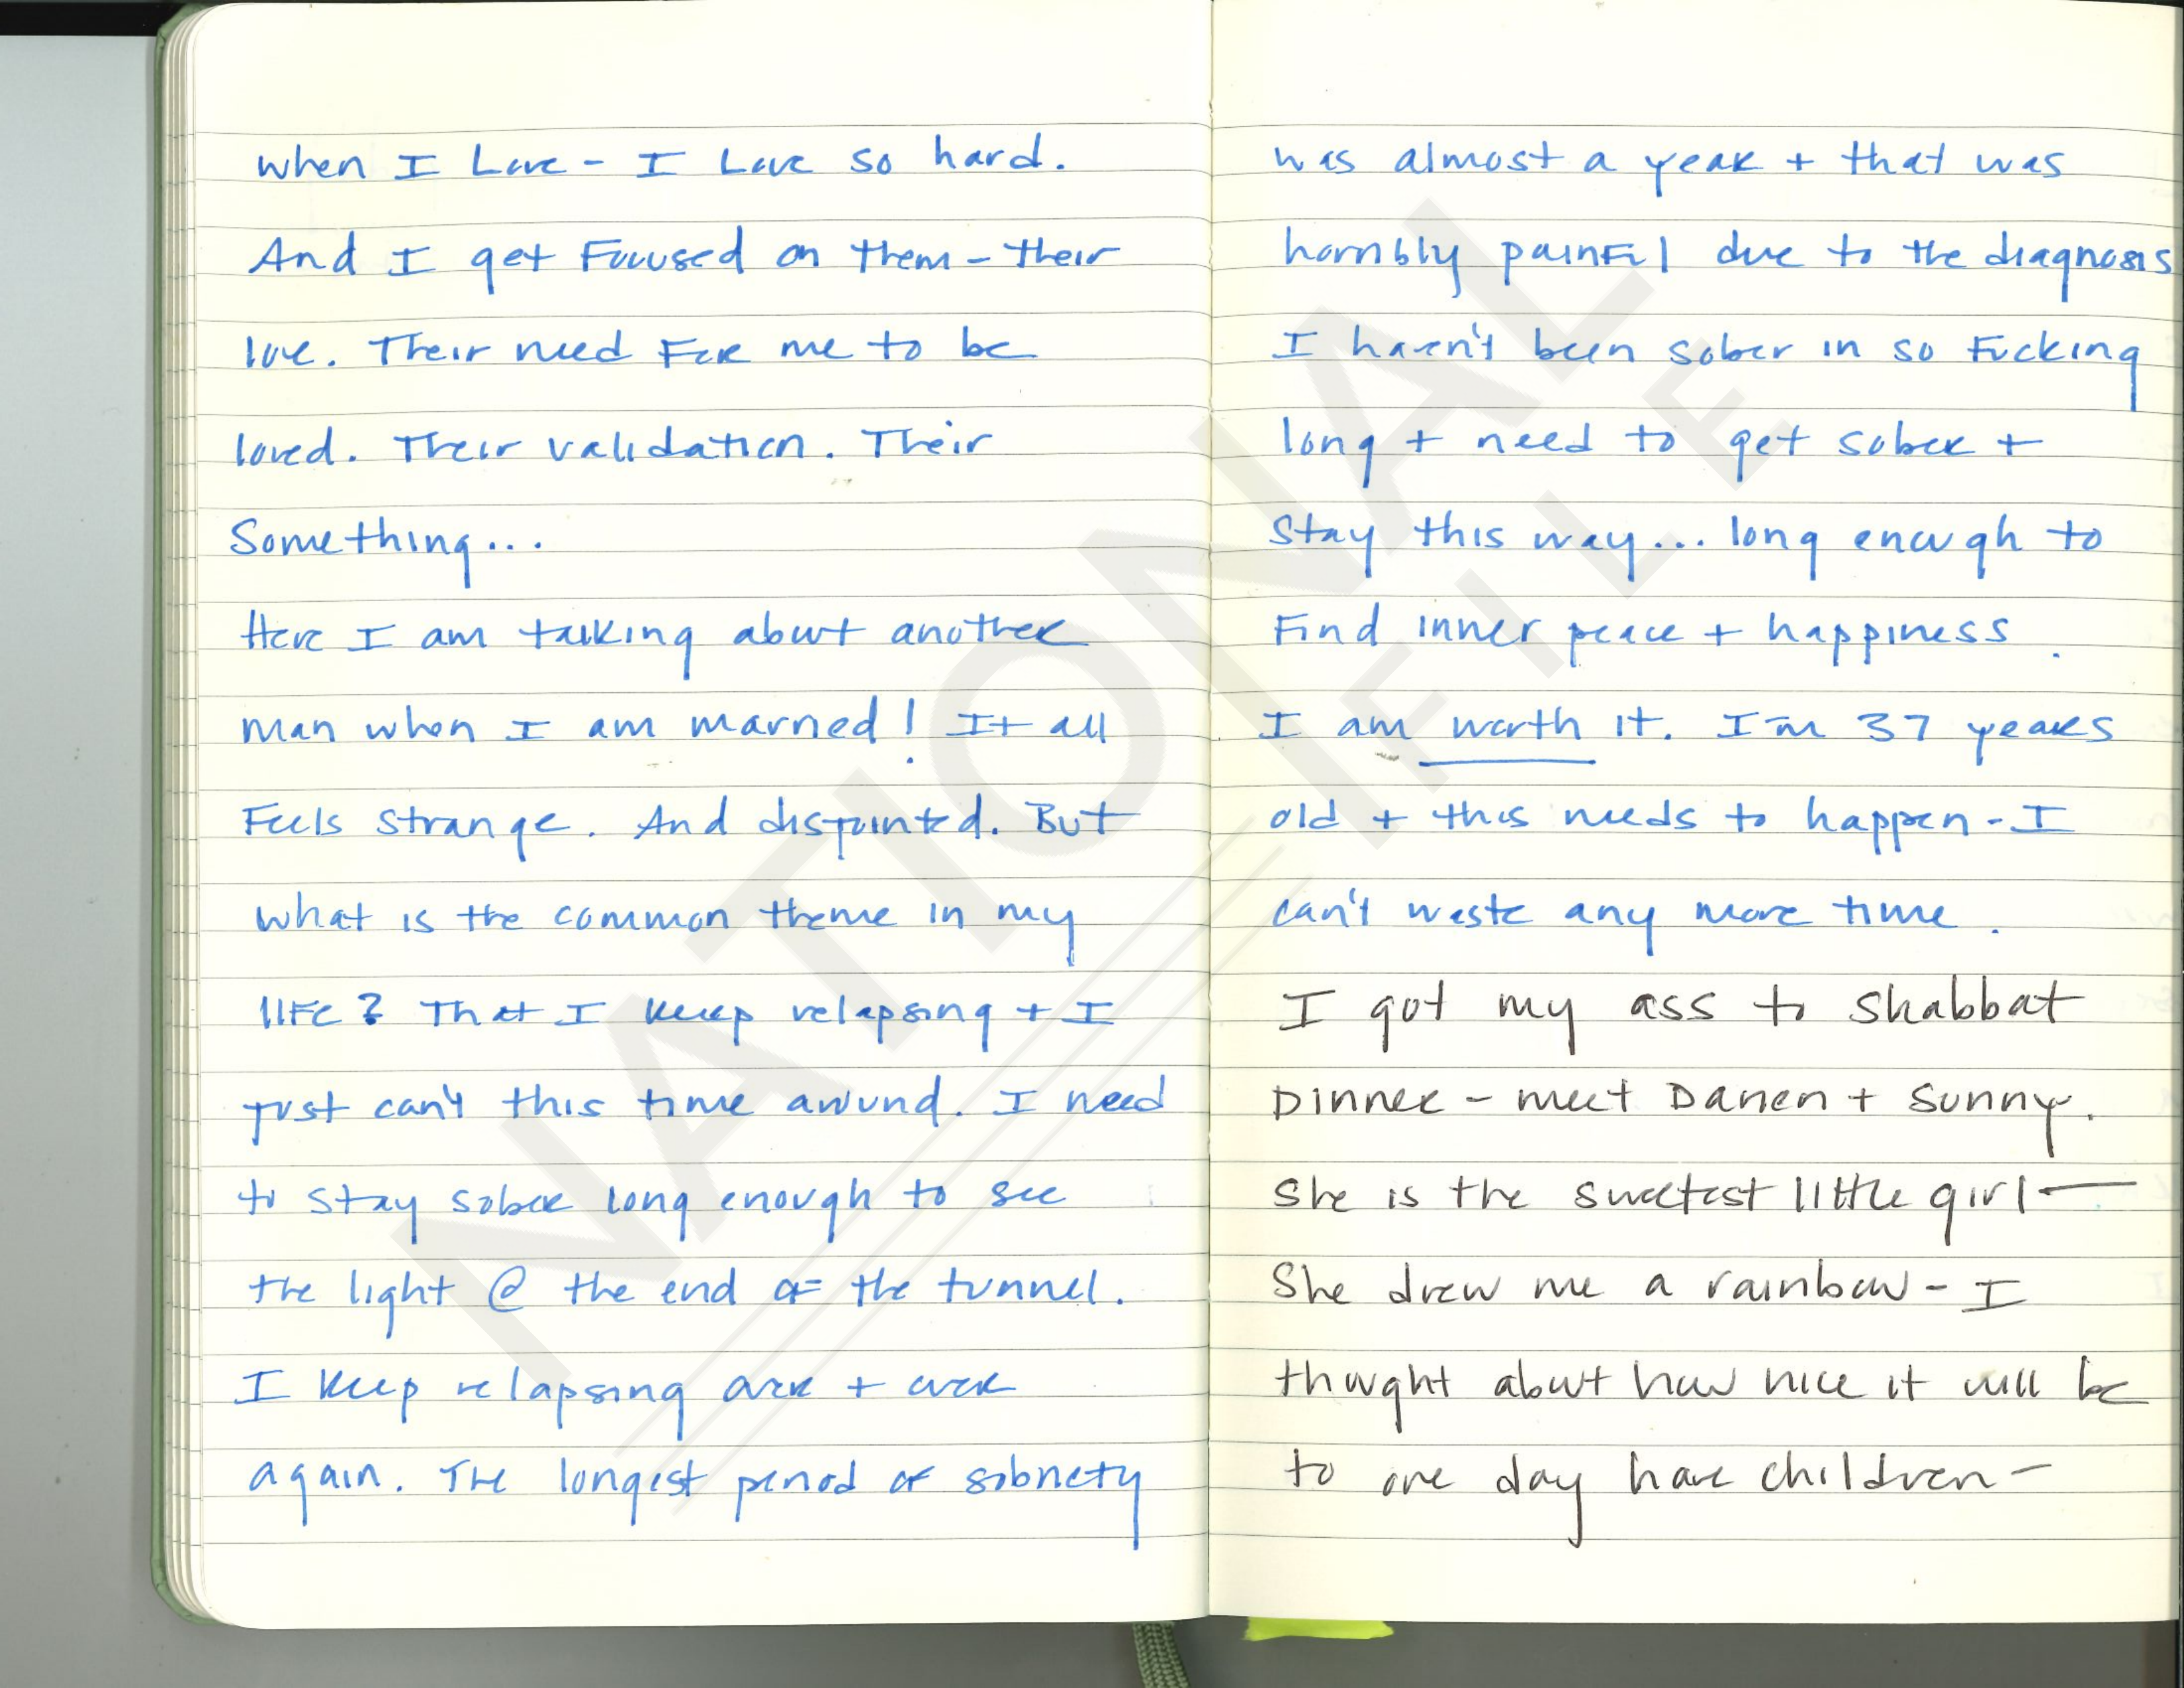 when I Love - I Love so hard.
And I get Focused on them - their
love. Their need For me to be
loved. Their validation. Their
Something...
Here I am talking about another
man when I am married! It all
Feels strange. And disjointed. But
what is the common theme in my
life? That I keep relapsing + I
just can't this time around. I need
to stay sober long enough to see
the light @ the end of the tunnel.
I keep relapsing over + over
again. The longest period of sobriety
was almost a year + that was
horribly painful due to the diagnosis
I haven't been sober in so Fucking
long + need to get sober +
Stay this way... long enough to
Find inner peace + happiness.
I am worth it. I'm 37 years
old + this needs to happen - I
can't waste any more time.
I got my ass to Shabbat
Dinner - meet Darren + Sunny.
She is the sweetest little girl —
She drew me a rainbow - I
thought about how nice it will be
to one day have children -
NATIONAL
FILE